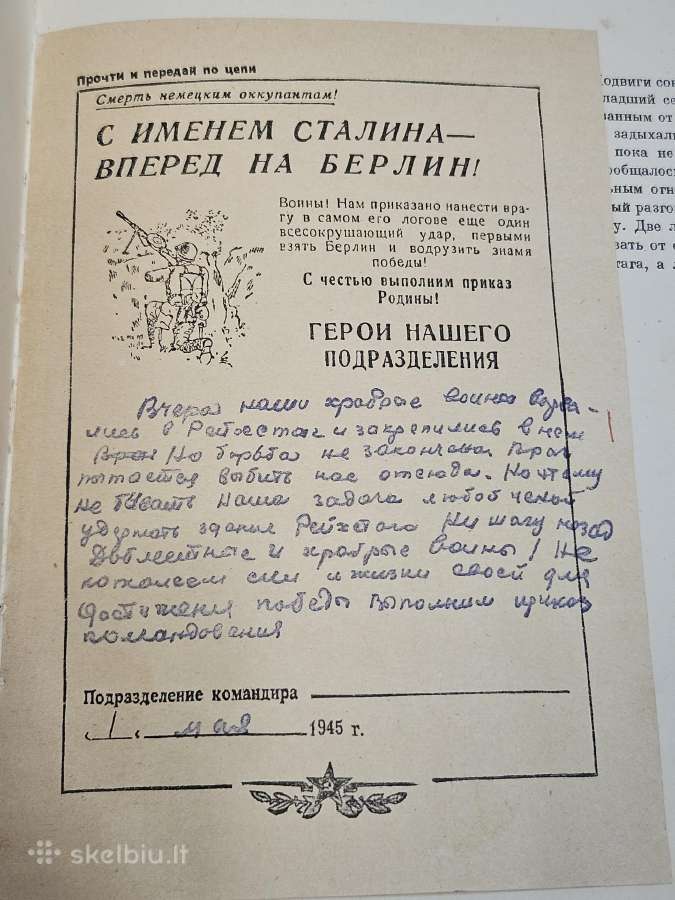 Прочти и передай по цепи
Смерть немецким оккупантам!
С ИМЕНЕМ СТАЛИНА—
ВПЕРЕД НА БЕРЛИН!
Воины! Нам приказано нанести вра-
гу в самом его логове еще один
всесокрушающий удар, первыми
взять Берлин и водрузить знамя
победы!
С честью выполним приказ
Родины!
ГЕРОИ НАШЕГО
ПОДРАЗДЕЛЕНИЯ
Вчера наши храбрые воины ворва-
лись в Рейхстаг и закрепились в нем
Но борьба не закончена Враг
пытается выбить нас отсюда. Но этому
не бывать Наша задача любой ценой
удержать здание Рейхстага Ни шагу назад
Доблестные и храбрые воины! Не
пожалеем сил и жизни своей для
достижения победы Выполним приказ
командования
Подразделение командира
„1“ мая 1945 г.
одвиги
ладший
ванным от
задыхали
пока не
ообщалось
ьным огн
ый разго
у. Две
вать от
тага, а
skelbiu.lt